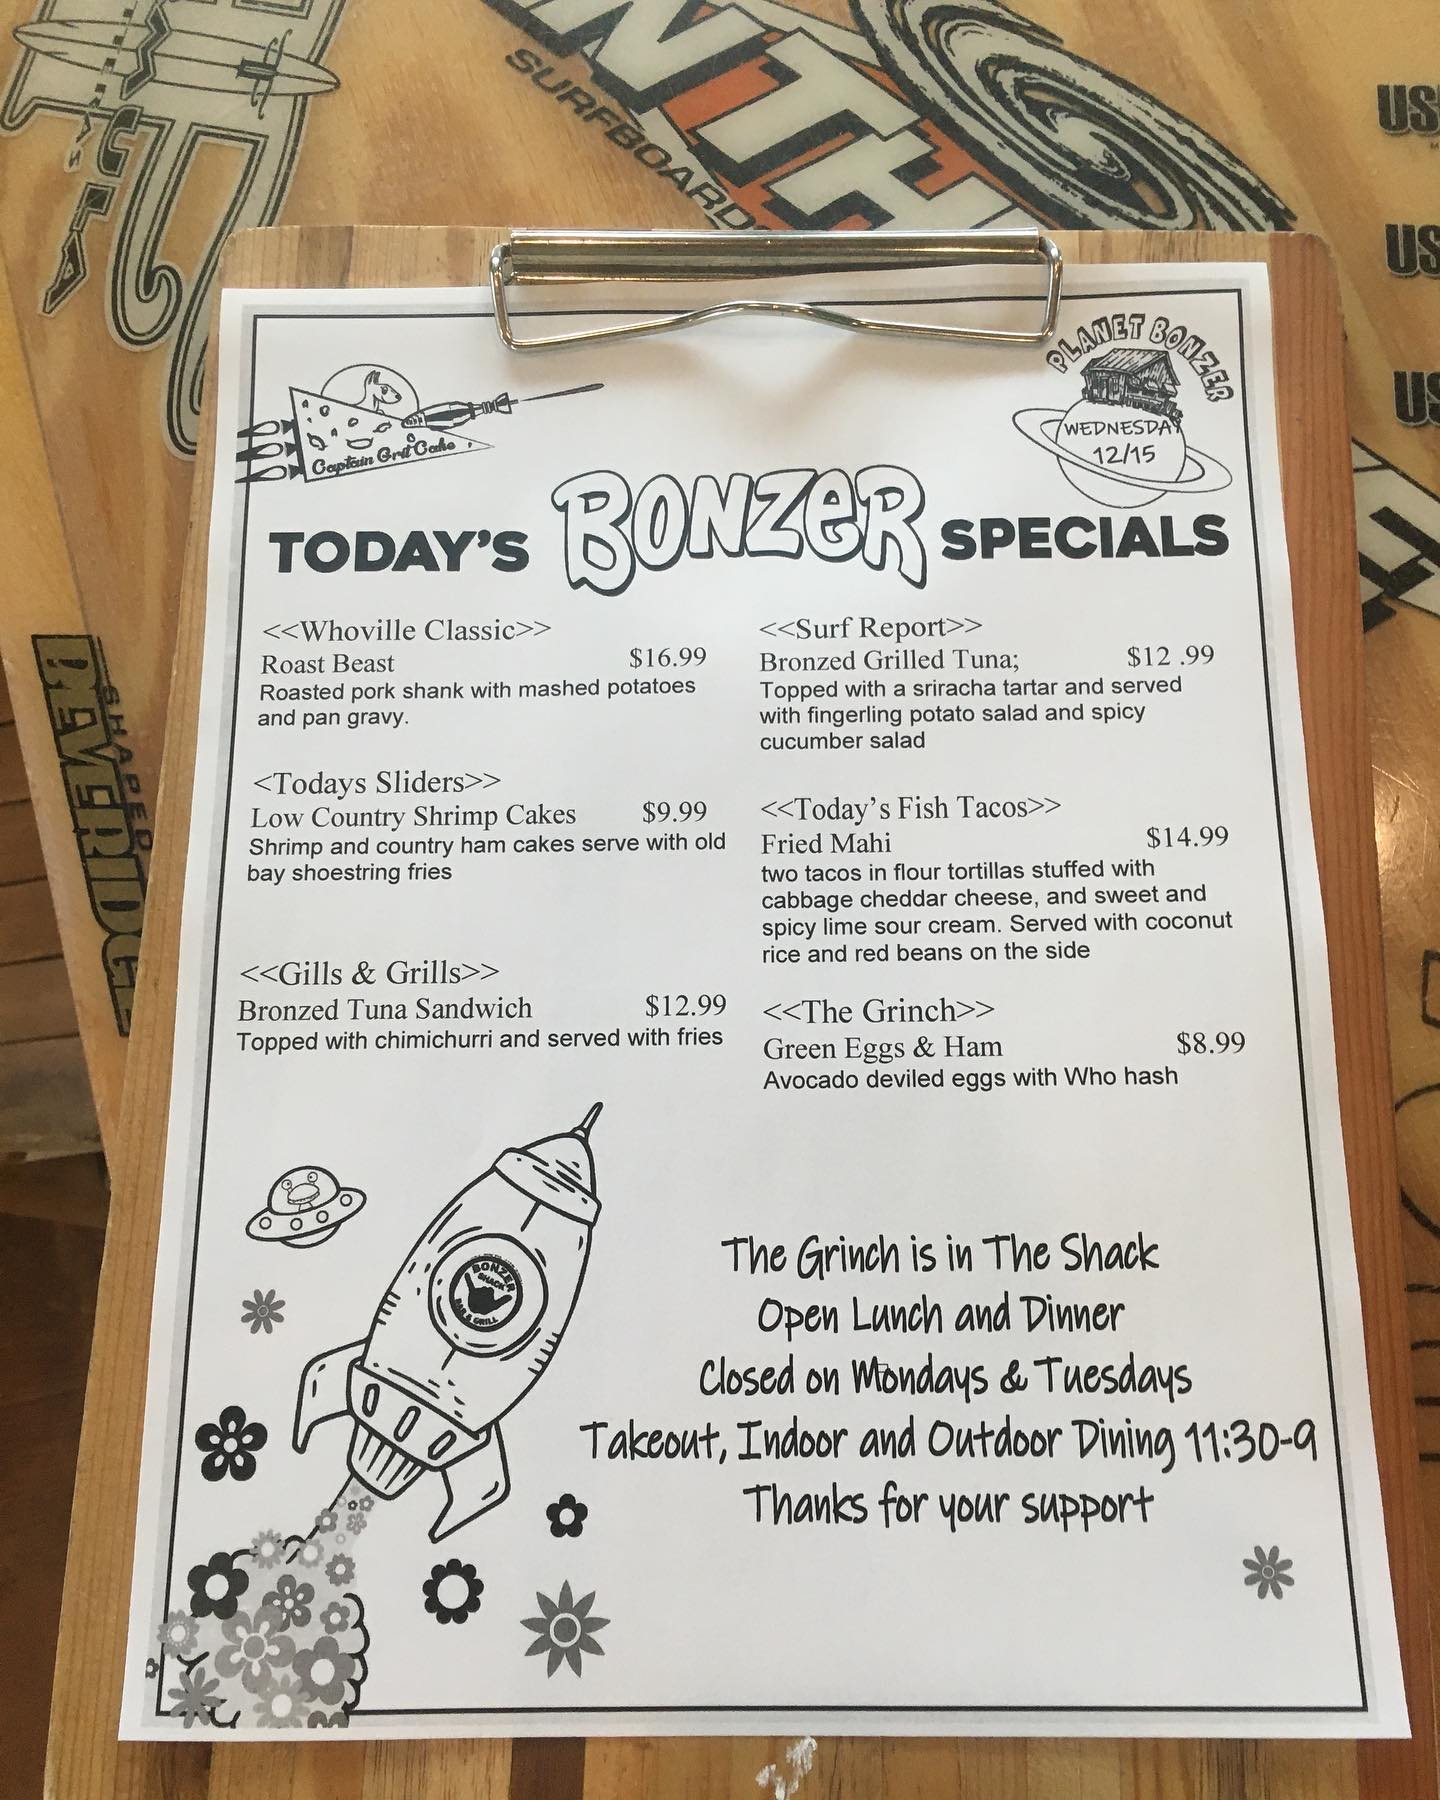 NTH
SURFBOARDS
US
US
US
SHAPED
BEVERIDGE
PLANET BONZER
WEDNESDAY
12/15
Captain Grit Cake
TODAY'S BONZER SPECIALS
<<Whoville Classic>>
Roast Beast $16.99
Roasted pork shank with mashed potatoes
and pan gravy.
<Todays Sliders>>
Low Country Shrimp Cakes $9.99
Shrimp and country ham cakes serve with old
bay shoestring fries
<<Gills & Grills>>
Bronzed Tuna Sandwich $12.99
Topped with chimichurri and served with fries
<<Surf Report>>
Bronzed Grilled Tuna; $12 .99
Topped with a sriracha tartar and served
with fingerling potato salad and spicy
cucumber salad
<<Today's Fish Tacos>>
Fried Mahi $14.99
two tacos in flour tortillas stuffed with
cabbage cheddar cheese, and sweet and
spicy lime sour cream. Served with coconut
rice and red beans on the side
<<The Grinch>>
Green Eggs & Ham $8.99
Avocado deviled eggs with Who hash
BONZER
SHACK
BAR & GRILL
The Grinch is in The Shack
Open Lunch and Dinner
Closed on Mondays & Tuesdays
Takeout, Indoor and Outdoor Dining 11:30-9
Thanks for your support